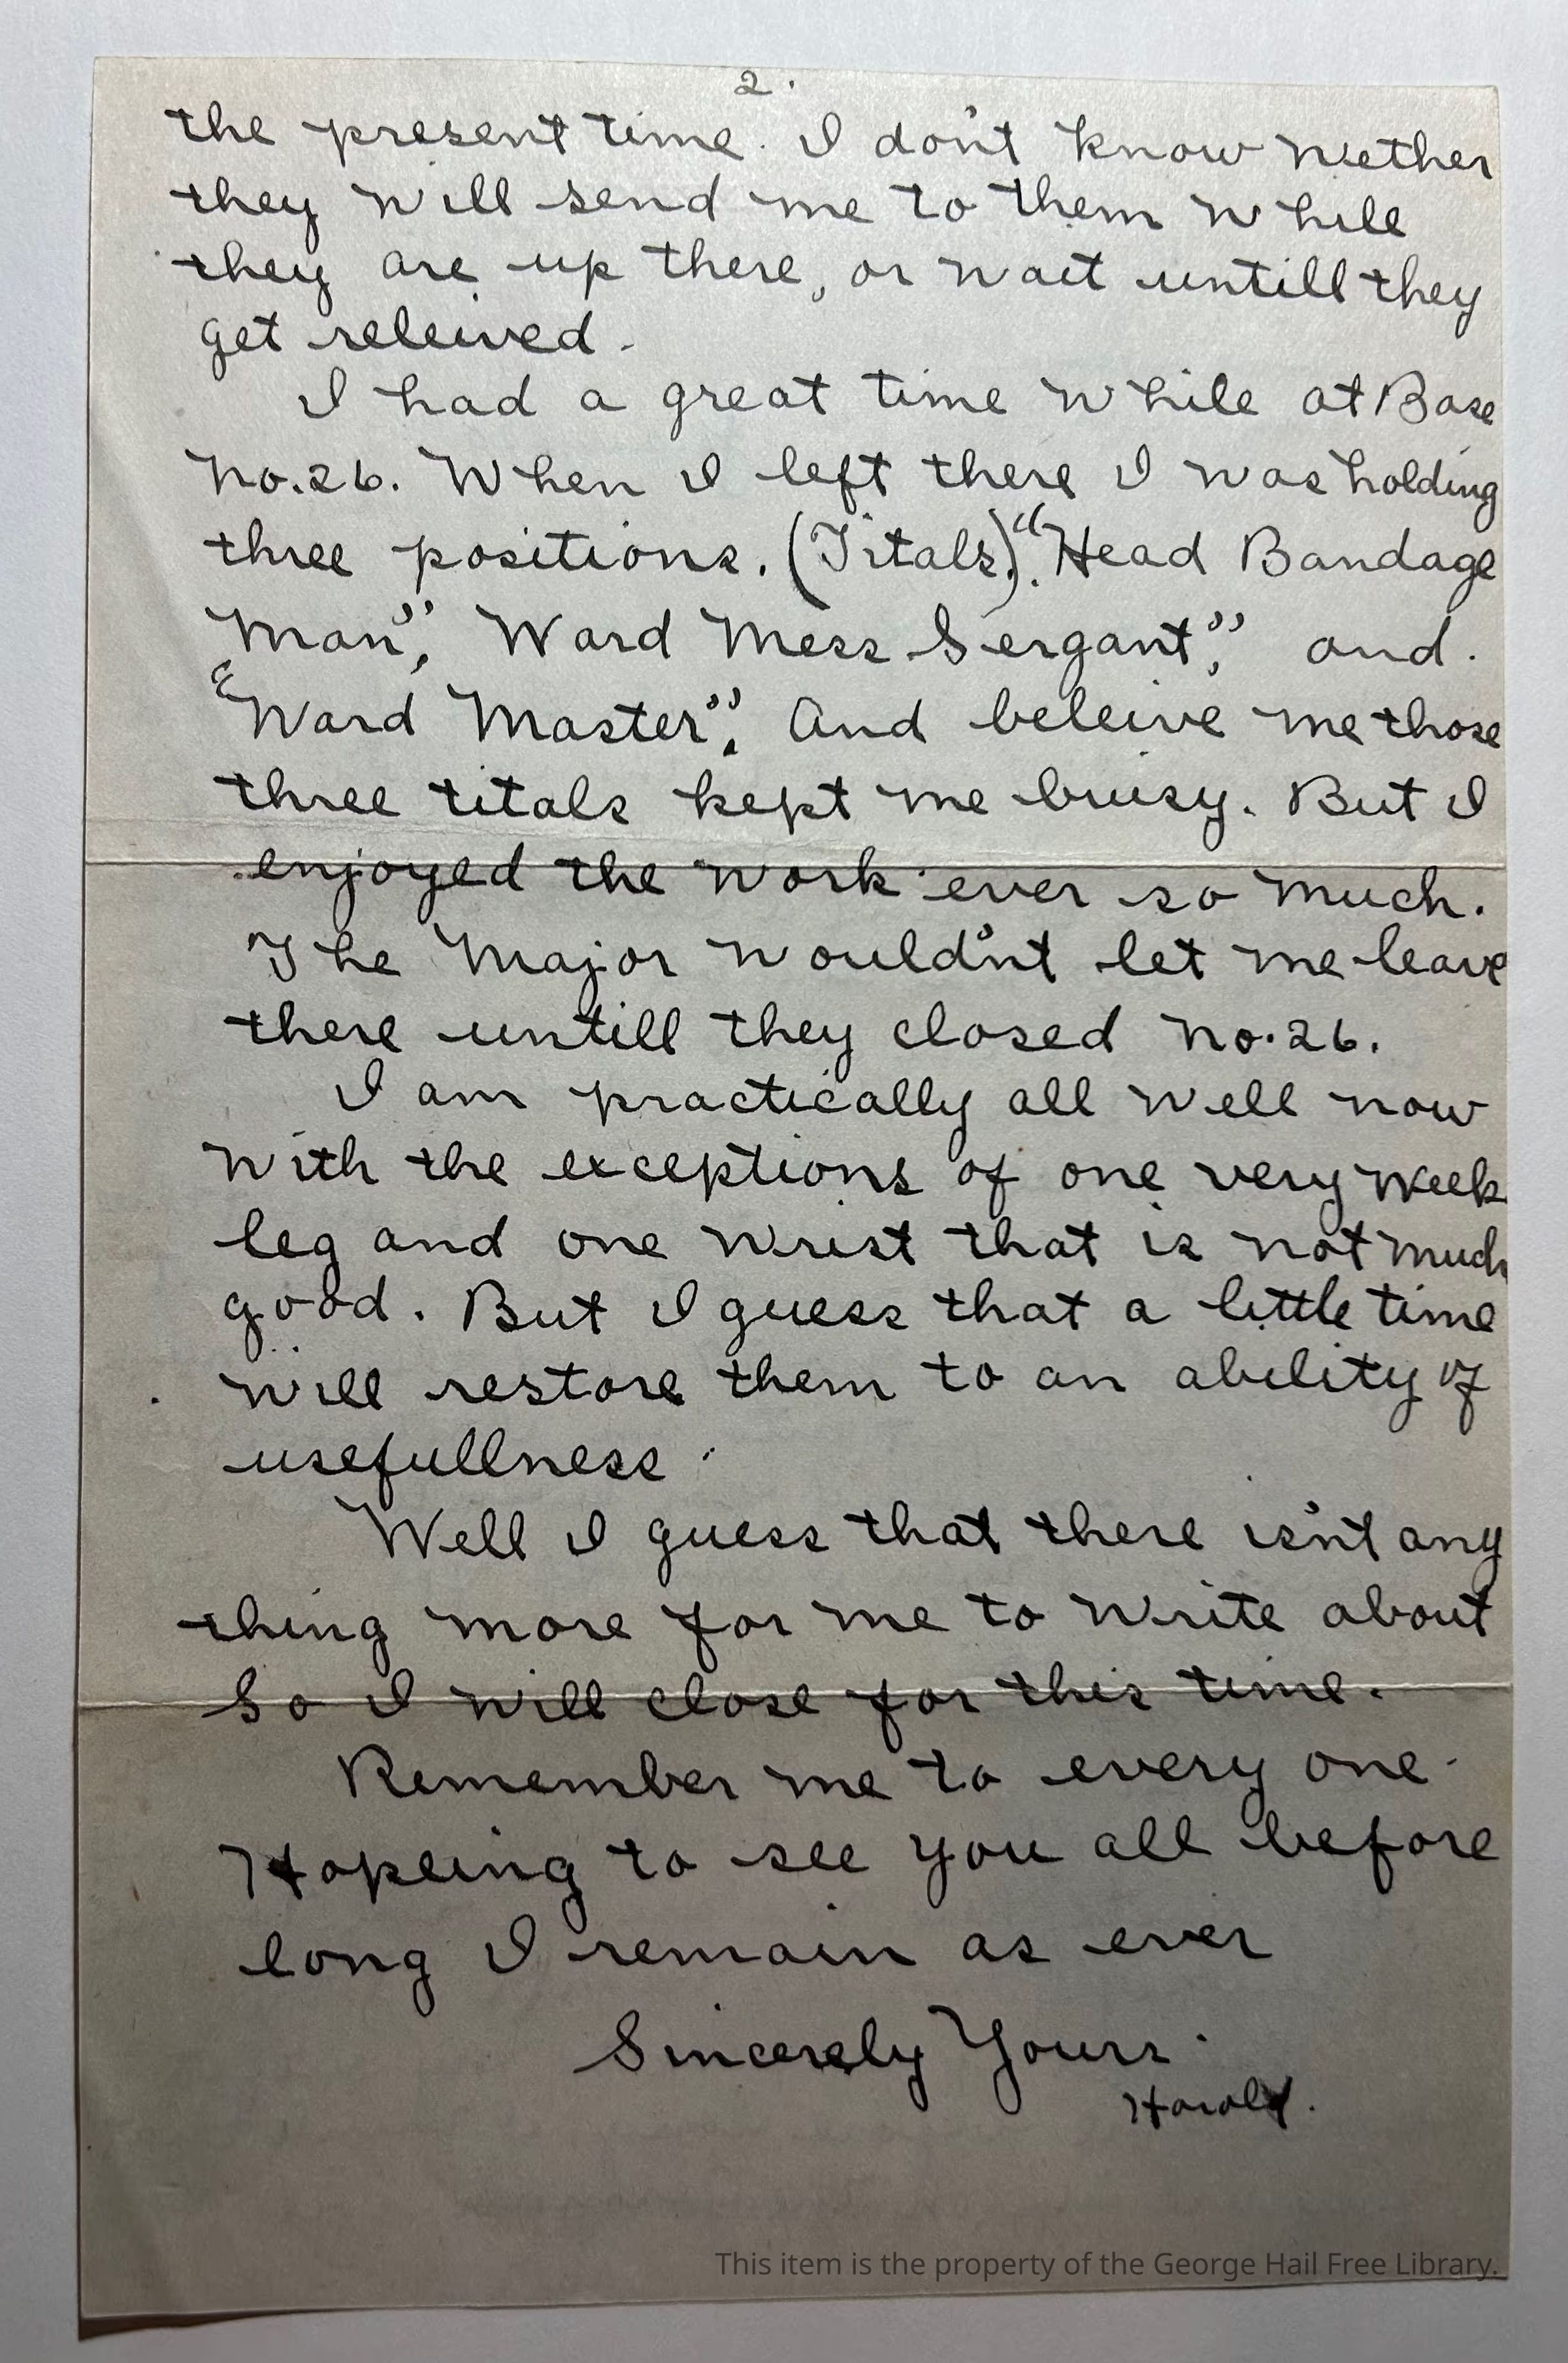 2.
the present time. I don't know wether
they will send me to them while
they are up there, or wait untill they
get releived.
I had a great time while at Base
No.26. When I left there I was holding
three positions. (Titals). "Head Bandage
Man", Ward Mess Sergant", and.
"Ward Master". And beleive me those
three titals kept me buisy. But I
enjoyed the work ever so much.
The Major would'nt let me leave
there untill they closed No.26.
I am practically all well now
with the exceptions of one very week
leg and one wrist that is not much
good. But I guess that a little time
will restore them to an ability of
usefullness.
Well I guess that there is'nt any
thing more for me to write about
So I will close for this time.
Remember me to every one.
Hopeing to see you all before
long I remain as ever
Sincerely Yours.
Harold.
This item is the property of the George Hail Free Library.